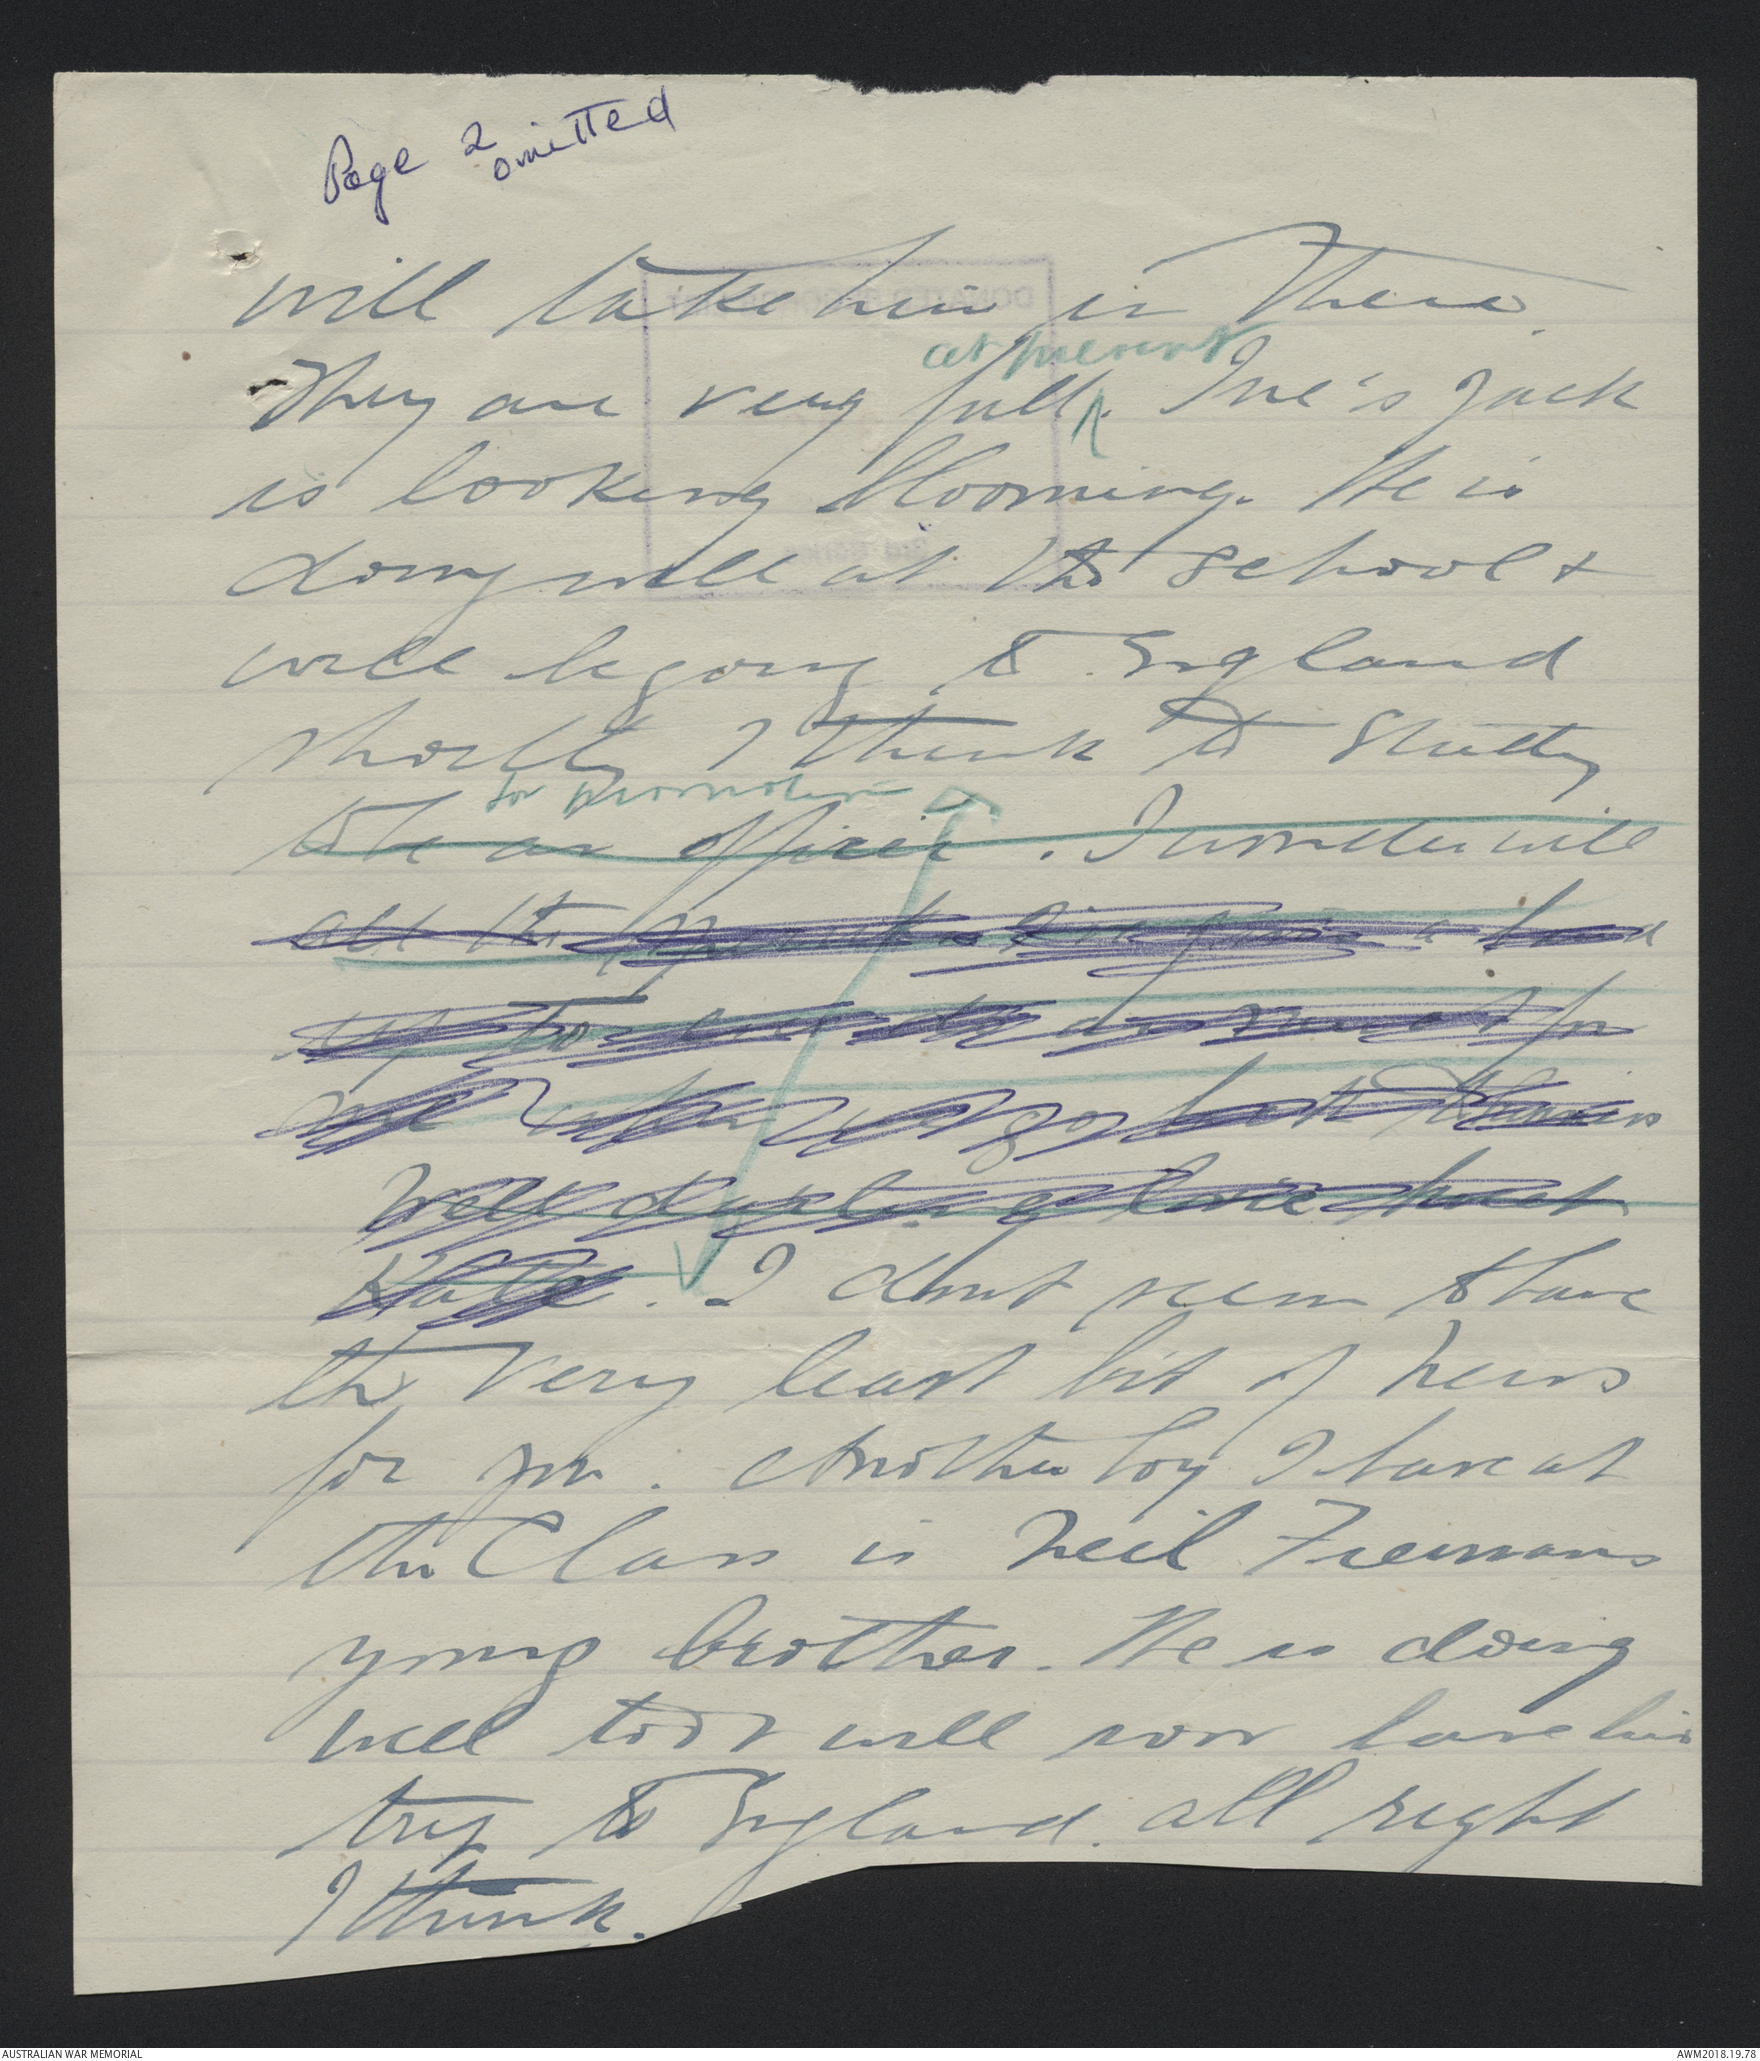 Page 2
omitted
will take him in there.
at present
They are very full. Ine's Jack
is looking blooming. He is
doing well at the school &
will be going to England
shortly I think to study
for promotion
to be an officer. I wonder will
all the a
up to for
both
Well darling
Kate. I dont seem to have
the very least bit of news
for you. Another boy I have at
the Class is Neil Freemans
young brother. He is doing
well too & will now have his
trip to England all right
I think.
AUSTRALIAN WAR MEMORIAL
AWM2018.19.78